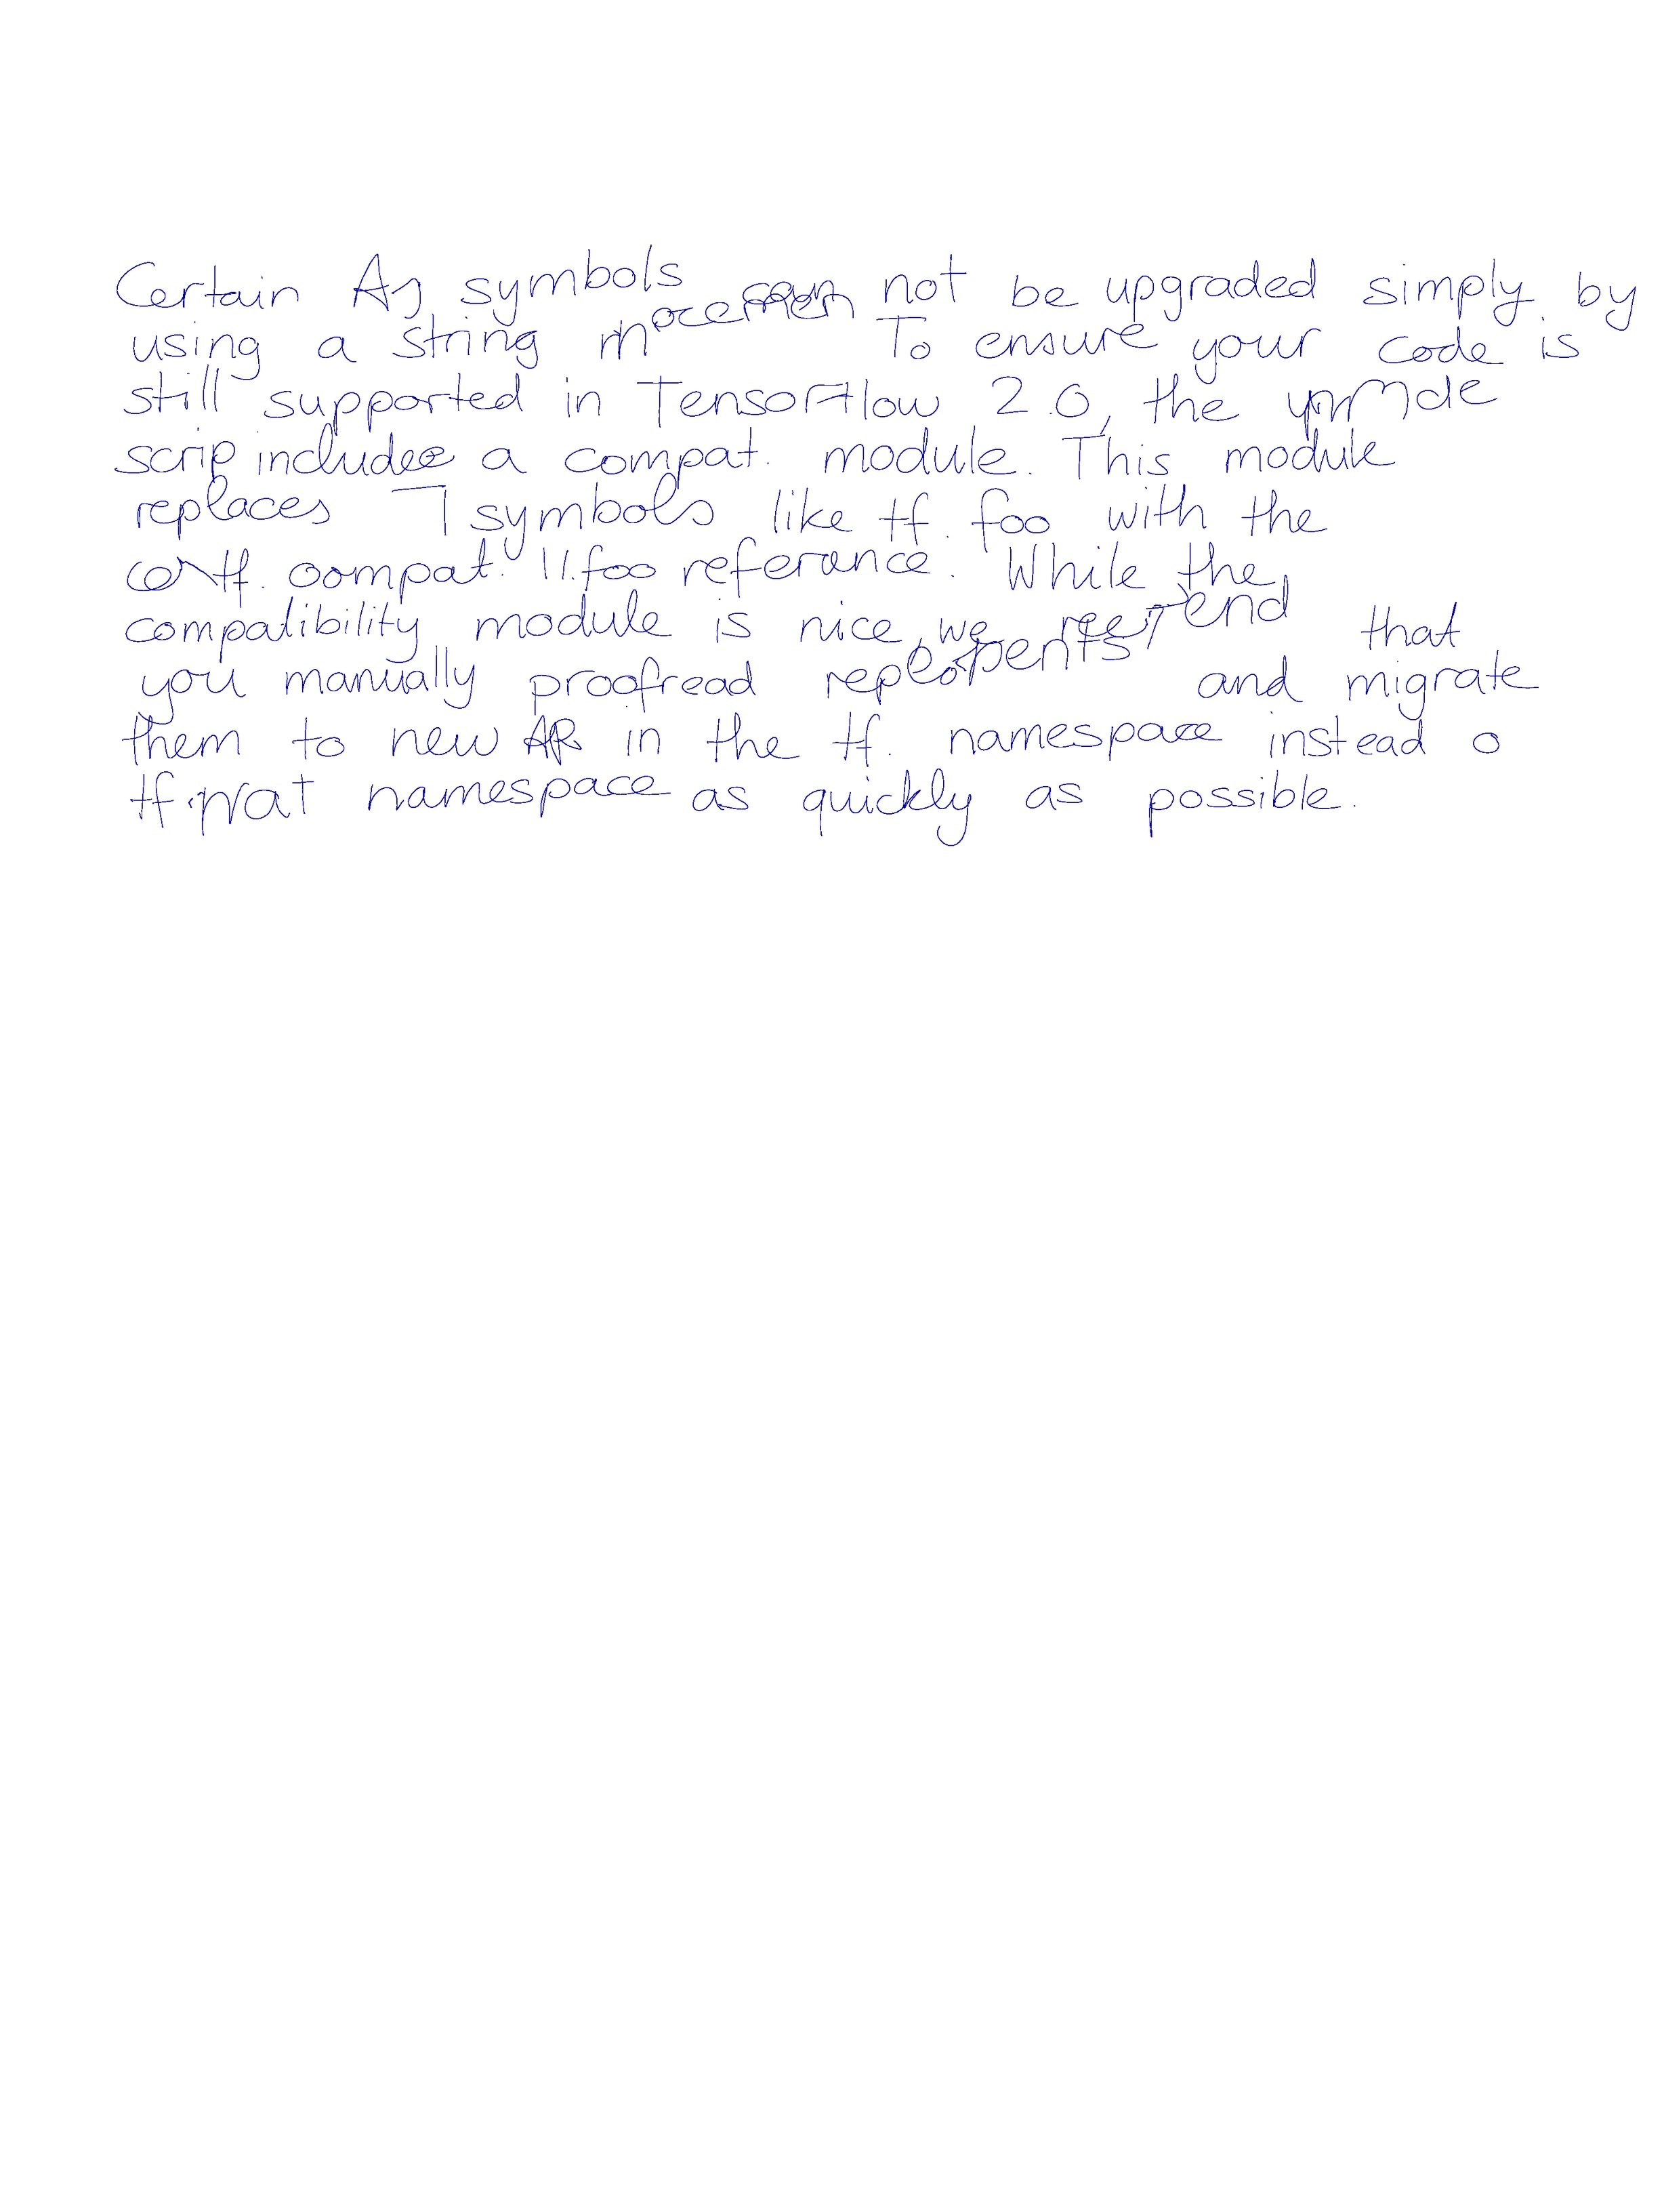 Certain symbols not be upgraded simply by
using a string To ensure your code is
still supported in TensorFlow 2.0, the
scrip includes a compat. module. This module
replaces symbols like tf. foo with the
tf. compat. foo reference. While the
compatibility module is nice, we that
you manually proofread and migrate
them to new in the tf. namespace instead o
namespace as quickly as possible.